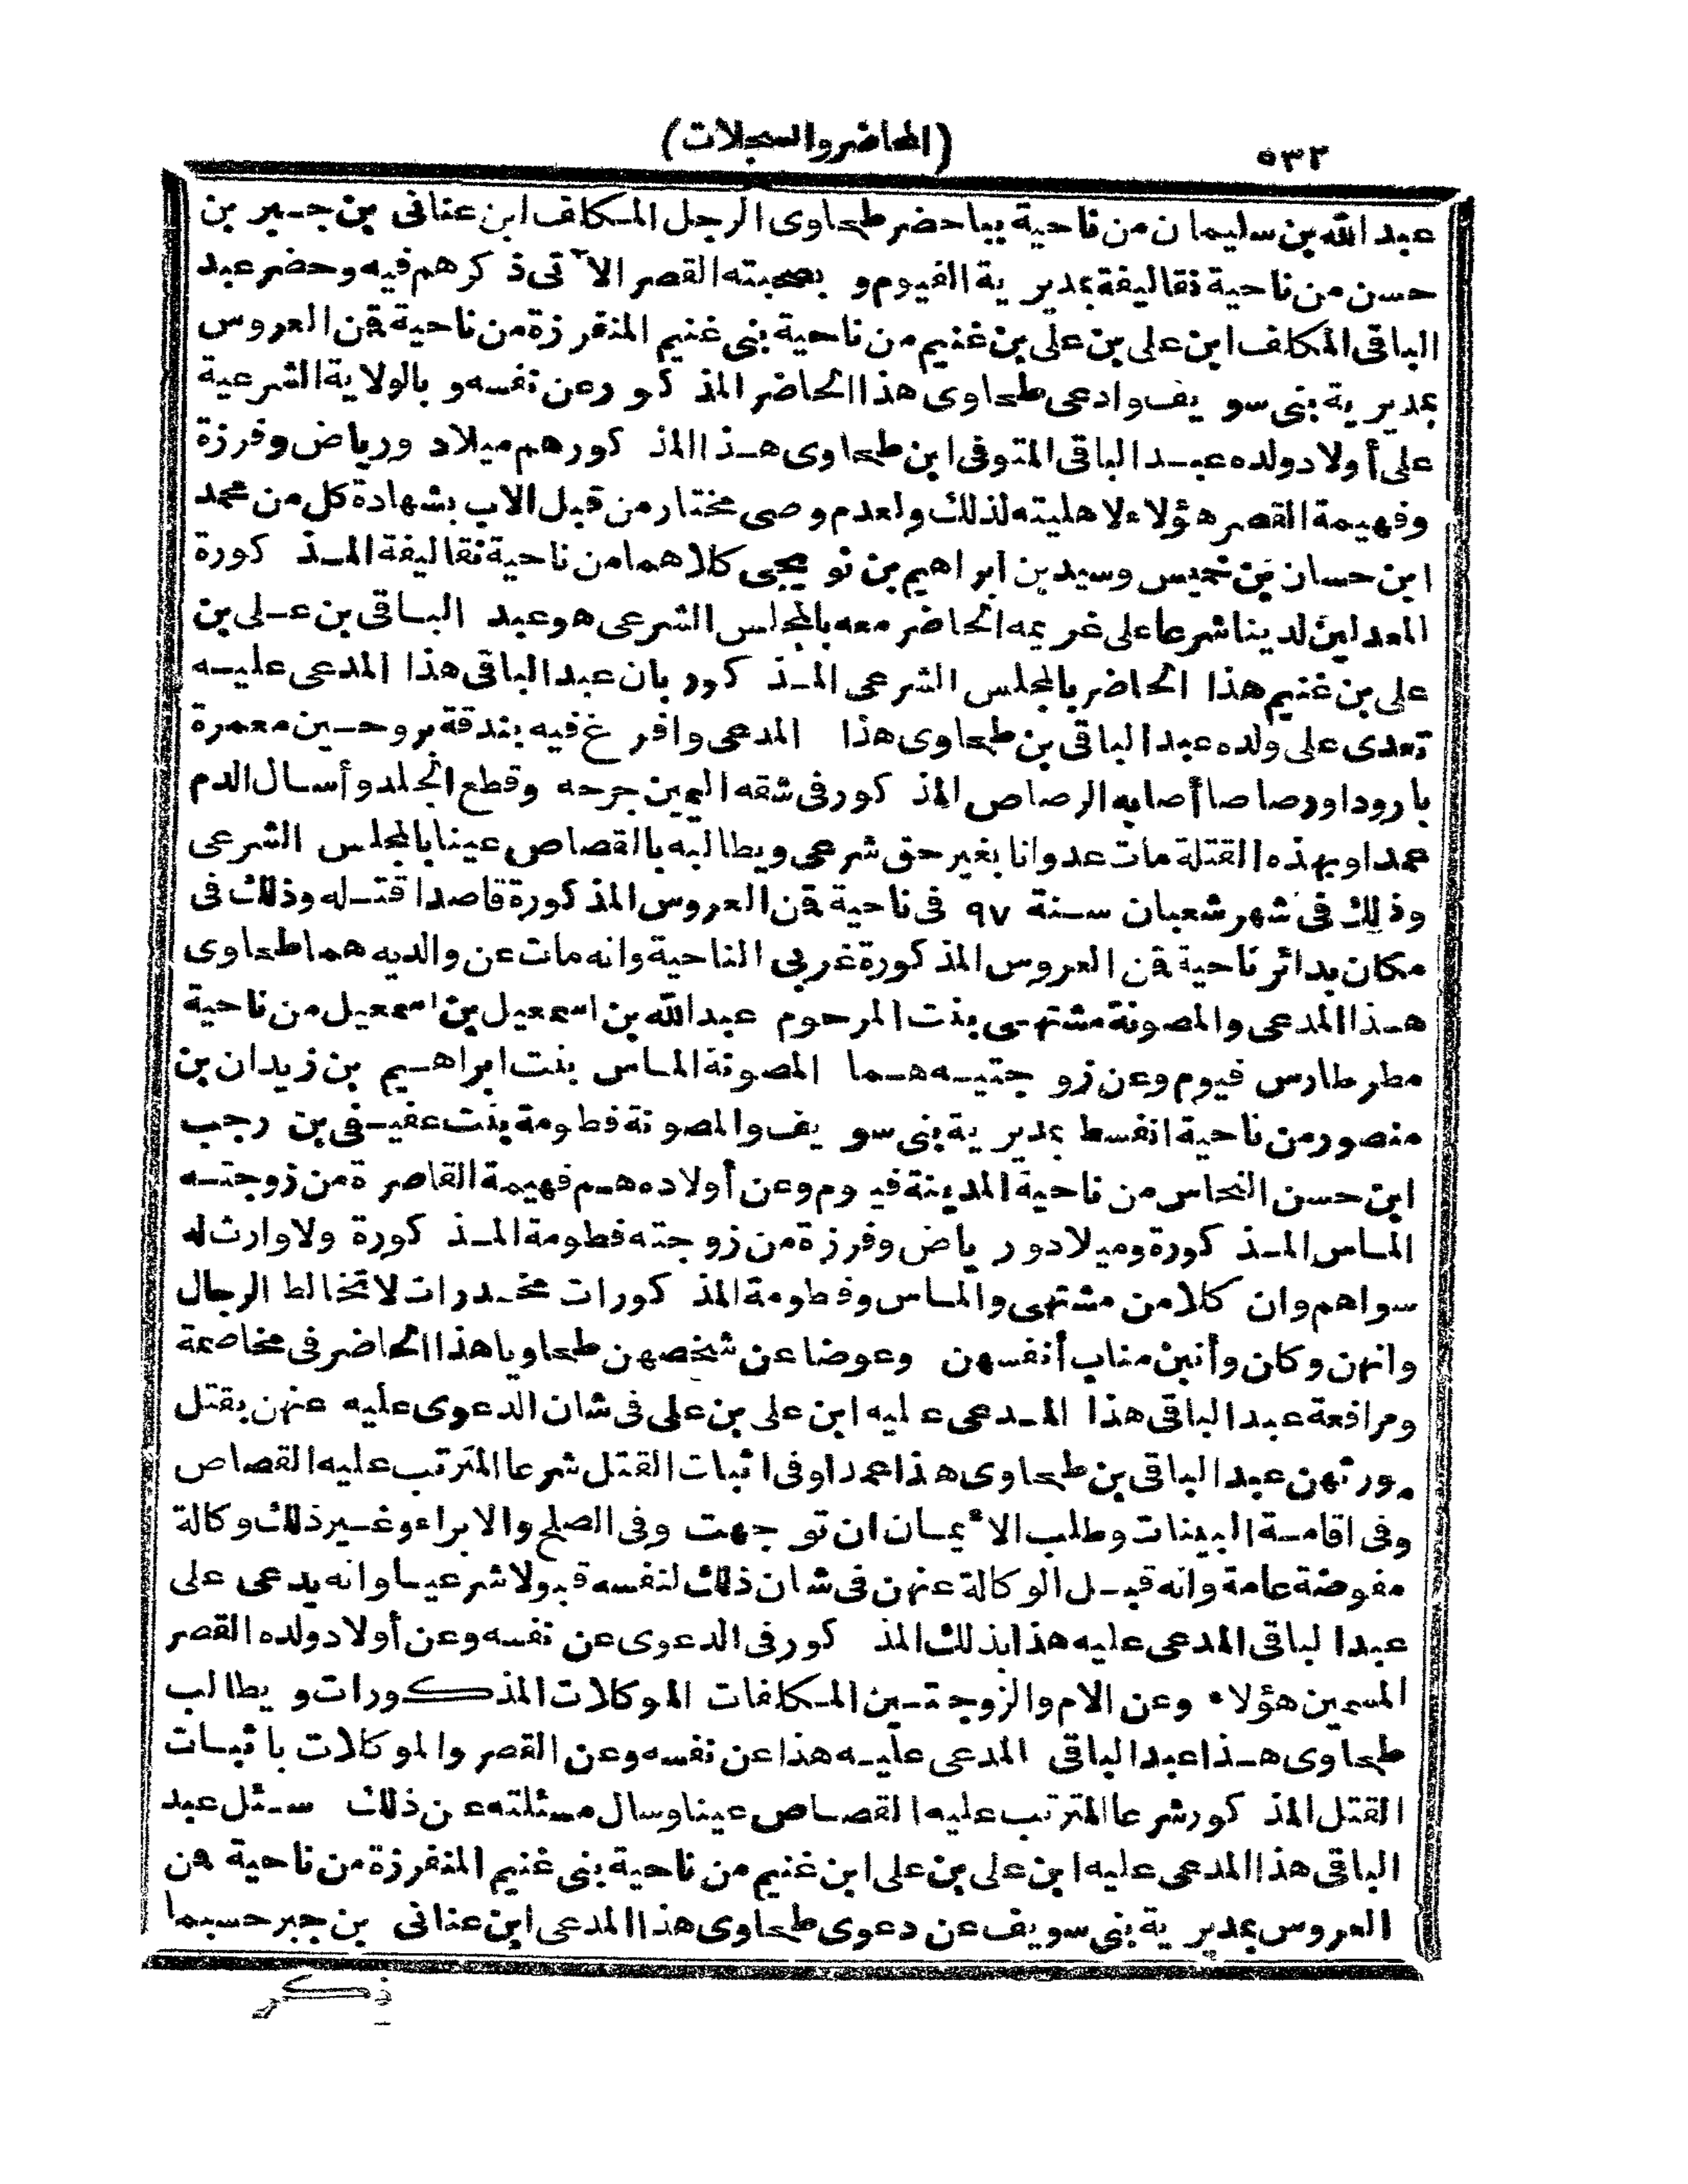 ٥٣٢
(المحاضر والسجلات)
عبد الله بن سليمان من ناحية ببا حضر طحاوى الرجل المكلف ابن عنانى بن جبر بن
حسن من ناحية نقاليفة بمديرية الفيوم و بصحبته القصر الآتى ذكرهم فيه وحضر عبد
الباقى المكلف ابن على بن على بن غنيم من ناحية بنى غنيم المنفرزة من ناحية قن العروس
بمديرية بنى سويف وادعى طحاوى هذا الحاضر المذكور عن نفسه و بالولاية الشرعية
على أولاد ولده عبد الباقى المتوفى ابن طحاوى هذا المذكور هم ميلاد ورياض وفرزة
وفهيمة القصر هؤلاء لاهليته لذلك ولعدم وصى مختار من قبل الاب بشهادة كل من محمد
ابن حسان بن خميس وسيد بن ابراهيم بن نويجى كلاهما من ناحية نقاليفة المذكورة
المعدلين لدينا شرعا على غريمه الحاضر معه بالمجلس الشرعى هو عبد الباقى بن على بن
على بن غنيم هذا الحاضر بالمجلس الشرعى المذكور بان عبد الباقى هذا المدعى عليه
تعدى على ولده عبد الباقى بن طحاوى هذا المدعى وافرغ فيه بندقة بروحين معمرة
بارودا ورصاصا أصابه الرصاص المذكور فى شقه اليمين جرحه وقطع الجلد وأسال الدم
عمدا وبهذه القتلة مات عدوانا بغير حق شرعى ويطالبه بالقصاص عينا بالمجلس الشرعى
وذلك فى شهر شعبان سنة ٩٧ فى ناحية قن العروس المذكورة قاصدا قتله وذلك فى
مكان بدائر ناحية قن العروس المذكورة غربى الناحية وانه مات عن والديه هما طحاوى
هذا المدعى والمصونة مشتهى بنت المرحوم عبد الله بن اسمعيل بن اسمعيل من ناحية
مطرطارس فيوم وعن زوجتيه هما المصونة الماس بنت ابراهيم بن زيدان بن
منصور من ناحية انفسط بمديرية بنى سويف والمصونة فطومة بنت عفيفى بن رجب
ابن حسن النحاس من ناحية المدينة فيوم وعن أولاده هم فهيمة القاصرة من زوجته
الماس المذكورة وميلاد ورياض وفرزة من زوجته فطومة المذكورة ولا وارث له
سواهم وان كلا من مشتهى والماس وفطومة المذكورات مخدرات لا تخالط الرجال
وانهن وكلن وأنبن مناب أنفسهن وعوضا عن شخصهن طحاويا هذا الحاضر فى مخاصمة
ومرافعة عبد الباقى هذا المدعى عليه ابن على بن على فى شان الدعوى عليه عنهن بقتل
مورثهن عبد الباقى بن طحاوى هذا عمدا وفى اثبات القتل شرعا المترتب عليه القصاص
وفى اقامة البينات وطلب الأيمان ان توجهت وفى الصلح والابراء وغير ذلك وكالة
مفوضة عامة وانه قبل الوكالة عنهن فى شان ذلك لنفسه قبولا شرعيا وانه يدعى على
عبد الباقى المدعى عليه هذا بذلك المذكور فى الدعوى عن نفسه وعن أولاد ولده القصر
المسمين هؤلاء وعن الام والزوجتين المكلفات الموكلات المذكورات و يطالب
طحاوى هذا عبد الباقى المدعى عليه هذا عن نفسه وعن القصر والموكلات باثبات
القتل المذكور شرعا المترتب عليه القصاص عينا وسال مسئلته عن ذلك سئل عبد
الباقى هذا المدعى عليه ابن على بن على ابن غنيم من ناحية بنى غنيم المنفرزة من ناحية قن
العروس بمديرية بنى سويف عن دعوى طحاوى هذا المدعى ابن عنانى بن جبر حسبما
ذكر